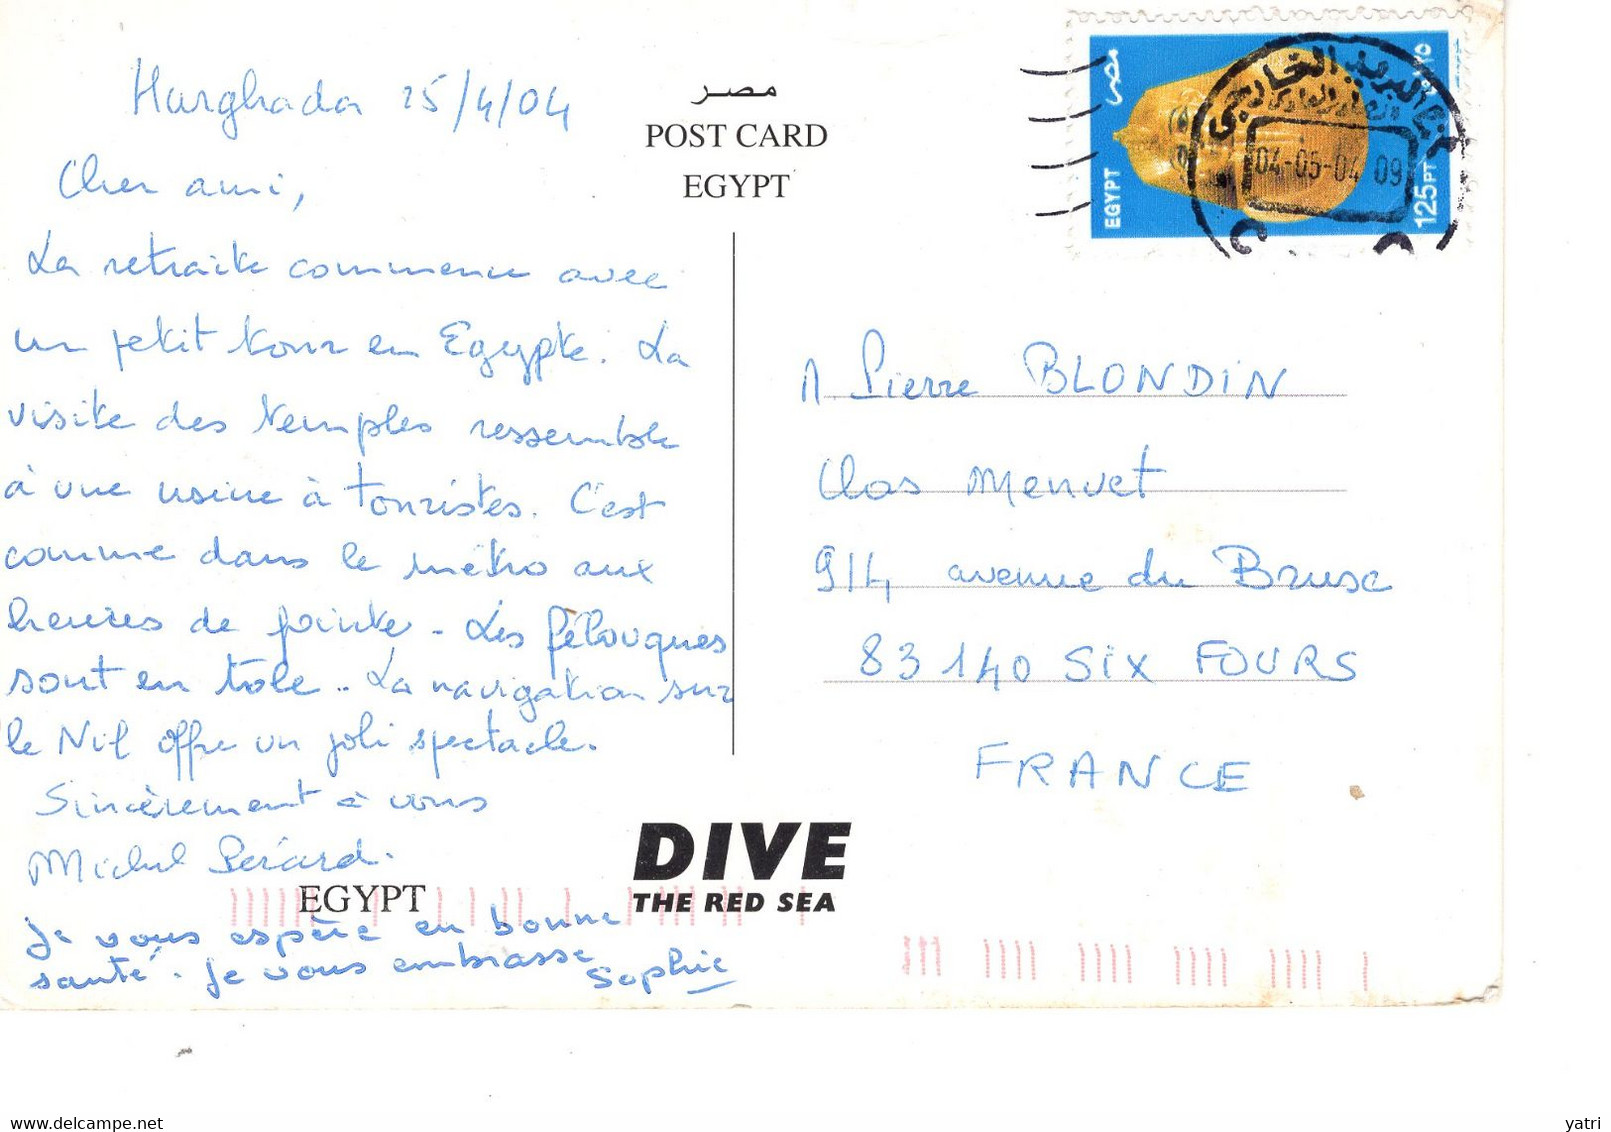 Hurghada 25/4/04
Cher ami,
La retraite commence avec
un petit tour en Egypte. La
visite des temples ressemble
à une usine à touristes. C'est
comme dans le métro aux
heures de pointe - Les félouques
sont en tole.. La navigation sur
le Nil offre un joli spectacle.
Sincèrement à vous
Michel Perard.
Je vous espère en bonne
santé. Je vous embrasse
Sophie
مصر
POST CARD
EGYPT
EGYPT
DIVE
THE RED SEA
مصر
EGYPT
125PT
04-05-04 09
Pierre BLONDIN
Clos Menuet
914 avenue du Brusc
83140 SIX FOURS
FRANCE
yatri